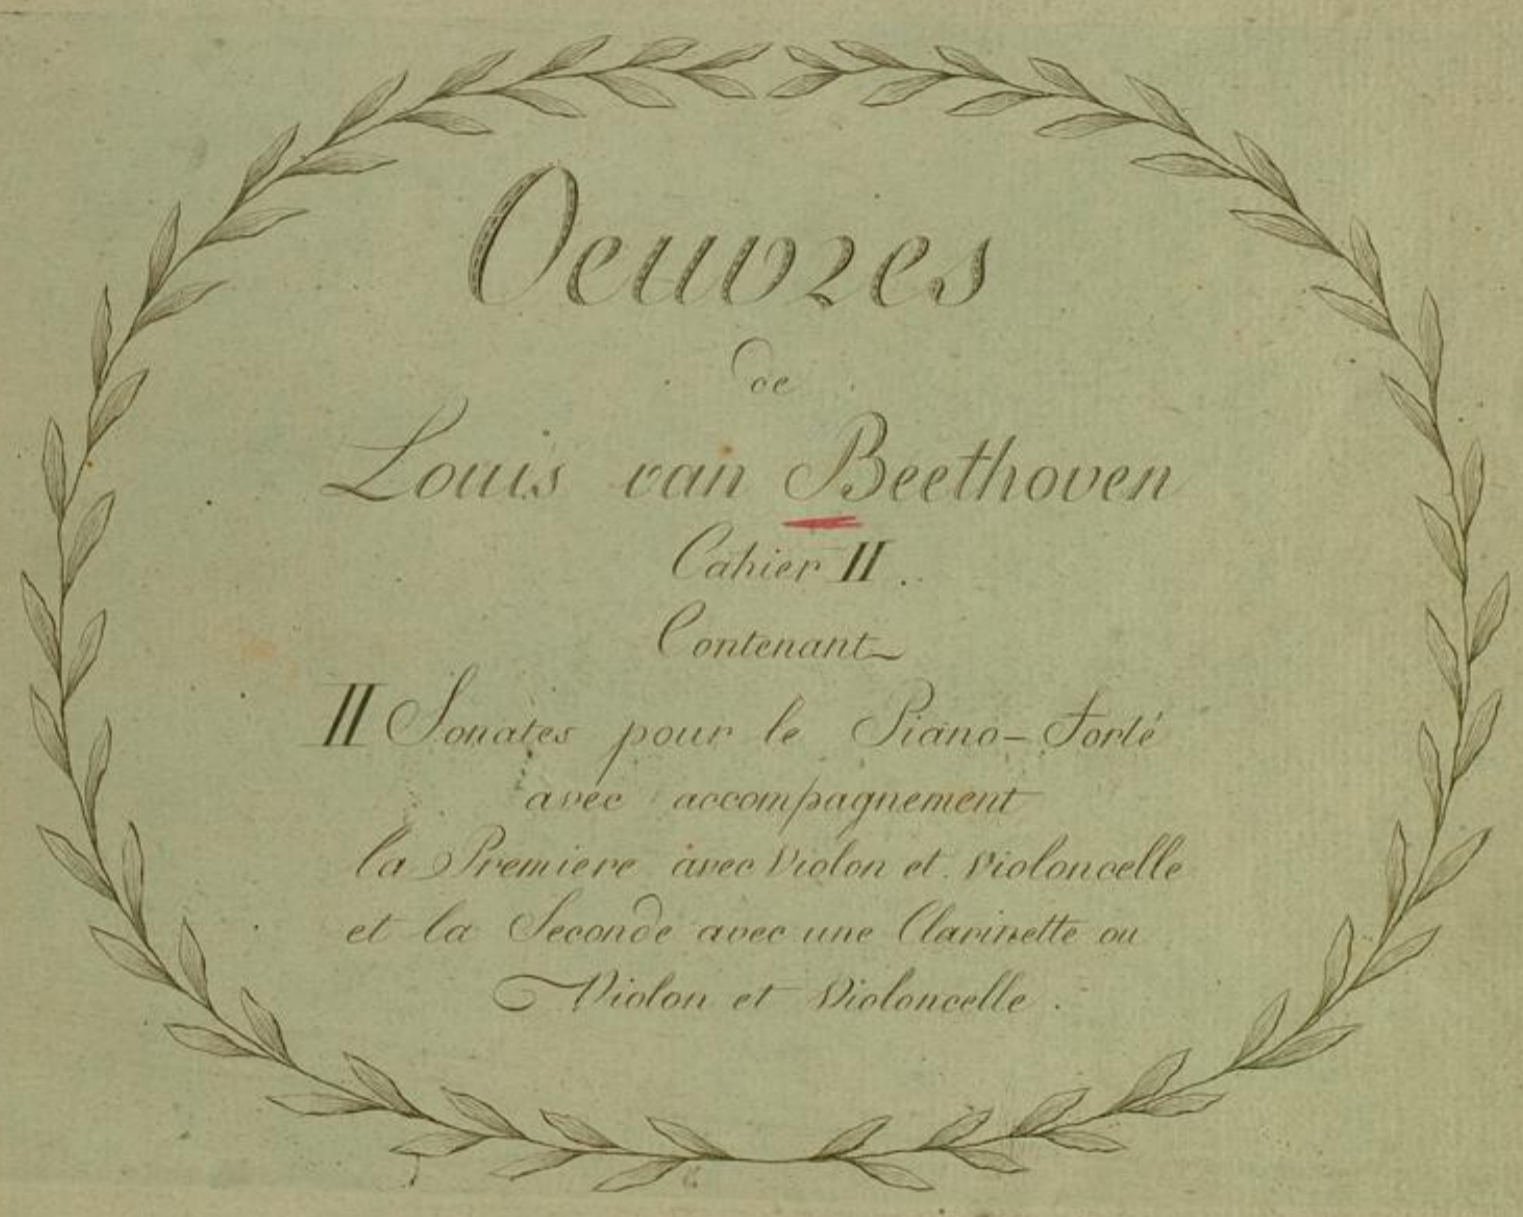 Oeuvres
de
Louis van Beethoven
Cahier II.
Contenant
II Sonates pour le Piano-Forté
avec accompagnement
la Premiere avec Violon et Violoncelle
et la Seconde avec une Clarinette ou
Violon et Violoncelle.